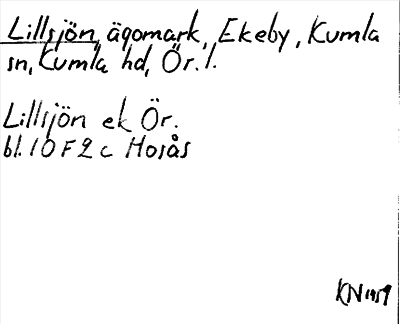 Lillsjön, ägomark, Ekeby, Kumla
sn, Kumla hd, Ör. l.
Lillsjön ek Ör.
bl. 10 F 2 c Hosås
KN 1959